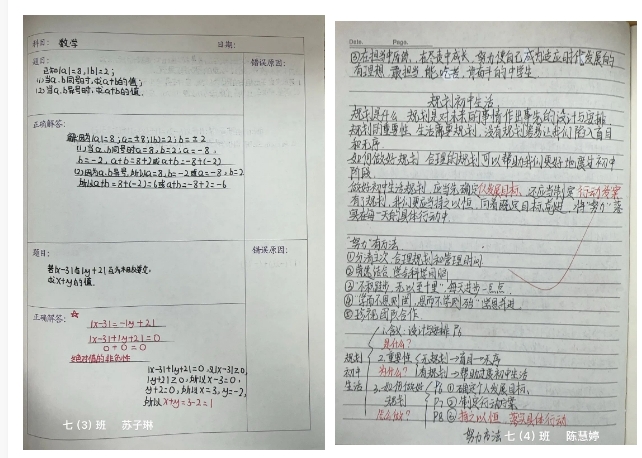 科目： 数学
日期：
题目：
错误原因：
已知|a|=8,|b|=2；
(1)当a、b同号时，求a+b的值；
(2)当a、b异号时，求a+b的值.
正确解答：
解:因为|a|=8;a=±8;|b|=2;b=±2
(1)当a、b同号时a=8,b=2;a=-8,
b=-2，a+b=8+2或a+b=-8+(-2)
(2)因为a、b异号，所以a=8,b=-2或a=-8,b=2
所以a+b=8+(-2)=6或a+b=-8+2=-6
题目：
错误原因：
若|x-3|与|y+2|互为相反数，
求x+y的值.
正确解答：
|x-3|=-|y+2|
|x-3|+|y+2|=0
0+0=0
绝对值的非负性
|x-3|+|y+2|=0,又|x-3|≥0,
|y+2|≥0,所以x-3=0,
y+2=0,所以x=3,y=-2,
所以x+y=3-2=1
七（3）班 苏子琳
Date. Page.
有理想、敢担当、能吃苦、肯奋斗的中学生.
规划初中生活
规划是什么 规划是对未来的事情作出事先的设计与安排
规划的重要性 生活需要规划，没有规划容易让我们陷入盲目
和无序.
如何做好规划 合理的规划可以帮助我们更好地度过初中
阶段.
做好初中生活规划，应当先确定个人发展目标，还应当制定行动方案
有了规划，我们更应当持之以恒，向着既定目标前进，将“努力”落
实在每一天的具体行动中.
“努力”有方法
①分清主次 合理规划和管理时间
⑤ 团队合作.
1.含义:设计与安排
是什么？
规划
初中
生活
2.重要性
无规划→盲目→无序
为什么？
有规划→帮助过好初中生活
3.如何做好
规划
怎么做？
P6 ①确定个人发展目标.
P7 ②制定行动方案
P8 ③持之以恒 落实具体行动
努力有方法
七（4）班 陈慧婷